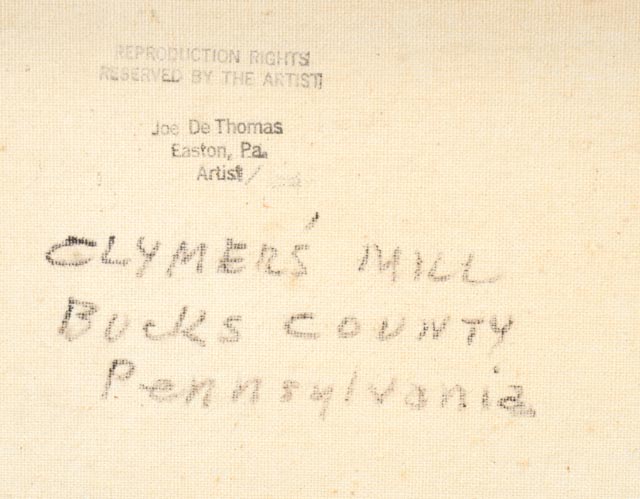 REPRODUCTION RIGHTS
RESERVED BY THE ARTIST
Joe De Thomas
Easton, Pa.
Artist /
CLYMERS' MILL
BUCKS COUNTY
Pennsylvania